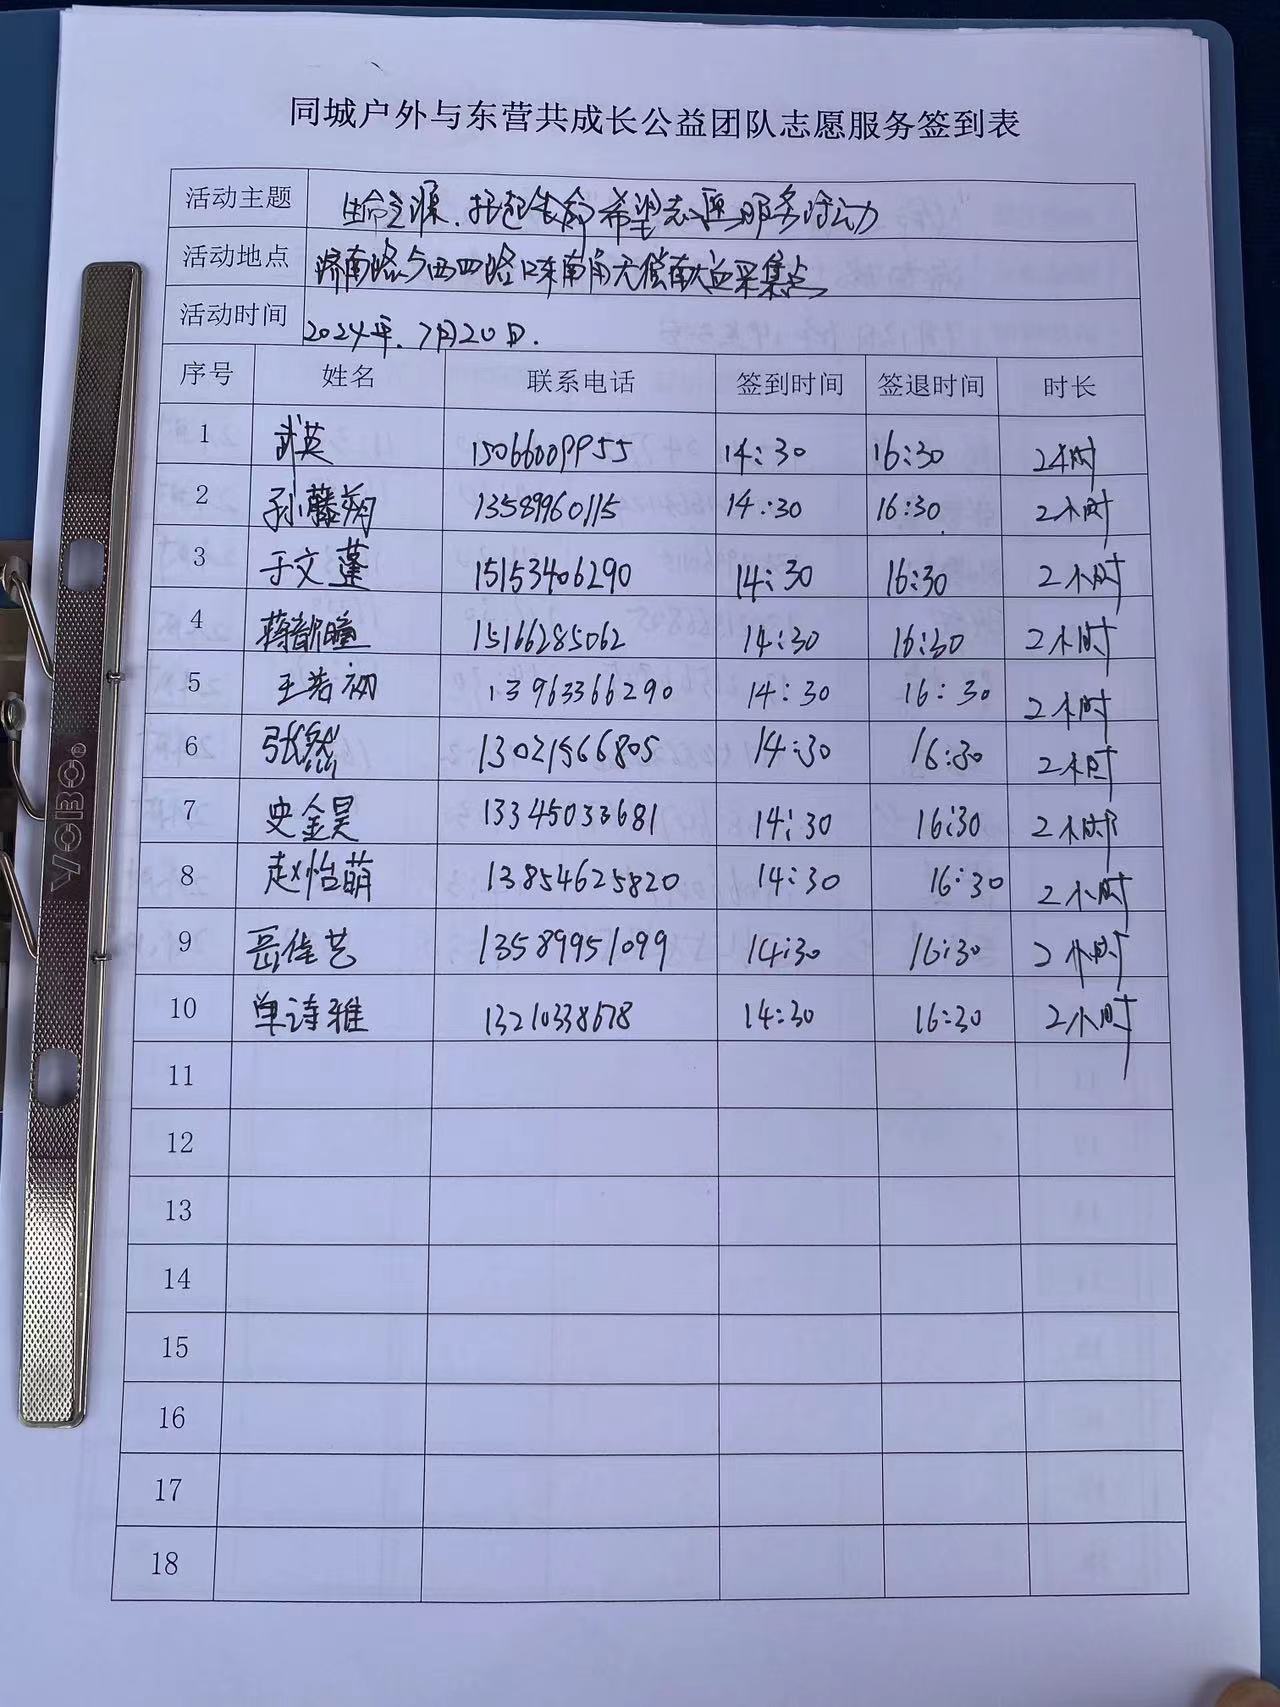 同城户外与东营共成长公益团队志愿服务签到表
活动主题 生命之源.托起生命希望志愿服务活动
活动地点 济南路与西四路口东南角无偿献血采集点
活动时间 2024年.7月20日.
序号 姓名 联系电话 签到时间 签退时间 时长
1 武英 15066009955 14:30 16:30 2小时
2 孙藤翔 13589960115 14:30 16:30 2小时
3 于文蓬 15153406290 14:30 16:30 2小时
4 蒋歆瞳 15166285062 14:30 16:30 2小时
5 王浩初 13963366290 14:30 16:30 2小时
6 张然 13021566805 14:30 16:30 2小时
7 史金昊 13345033681 14:30 16:30 2小时
8 赵怡萌 13854625820 14:30 16:30 2小时
9 岳佳艺 13589951099 14:30 16:30 2小时
10 单诗雅 13210338678 14:30 16:30 2小时
11
12
13
14
15
16
17
18
VOBO